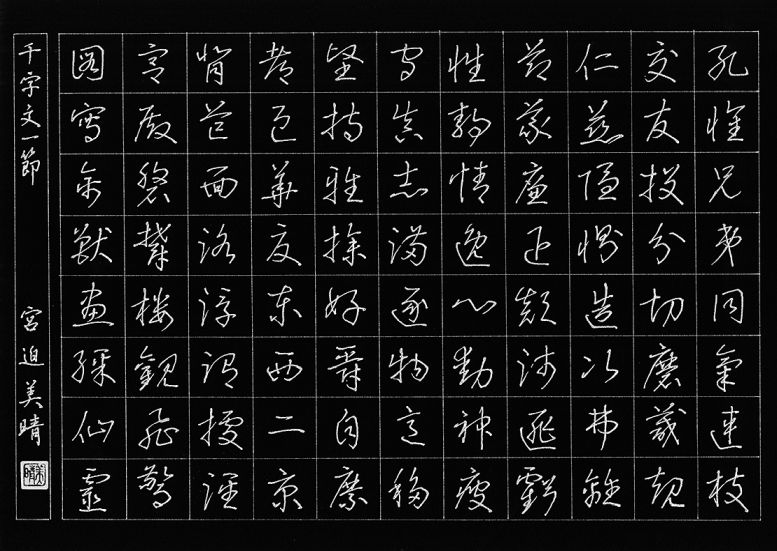 孔懷兄弟同氣連枝
交友投分切磨箴規
仁慈隱惻造次弗離
節義廉退顛沛匪虧
性靜情逸心動神疲
守真志滿逐物意移
堅持雅操好爵自縻
都邑華夏東西二京
背芒面洛浮渭據涇
宮殿盤鬱樓觀飛驚
圖寫禽獸畫綵仙靈
千字文一節 宮迫美晴